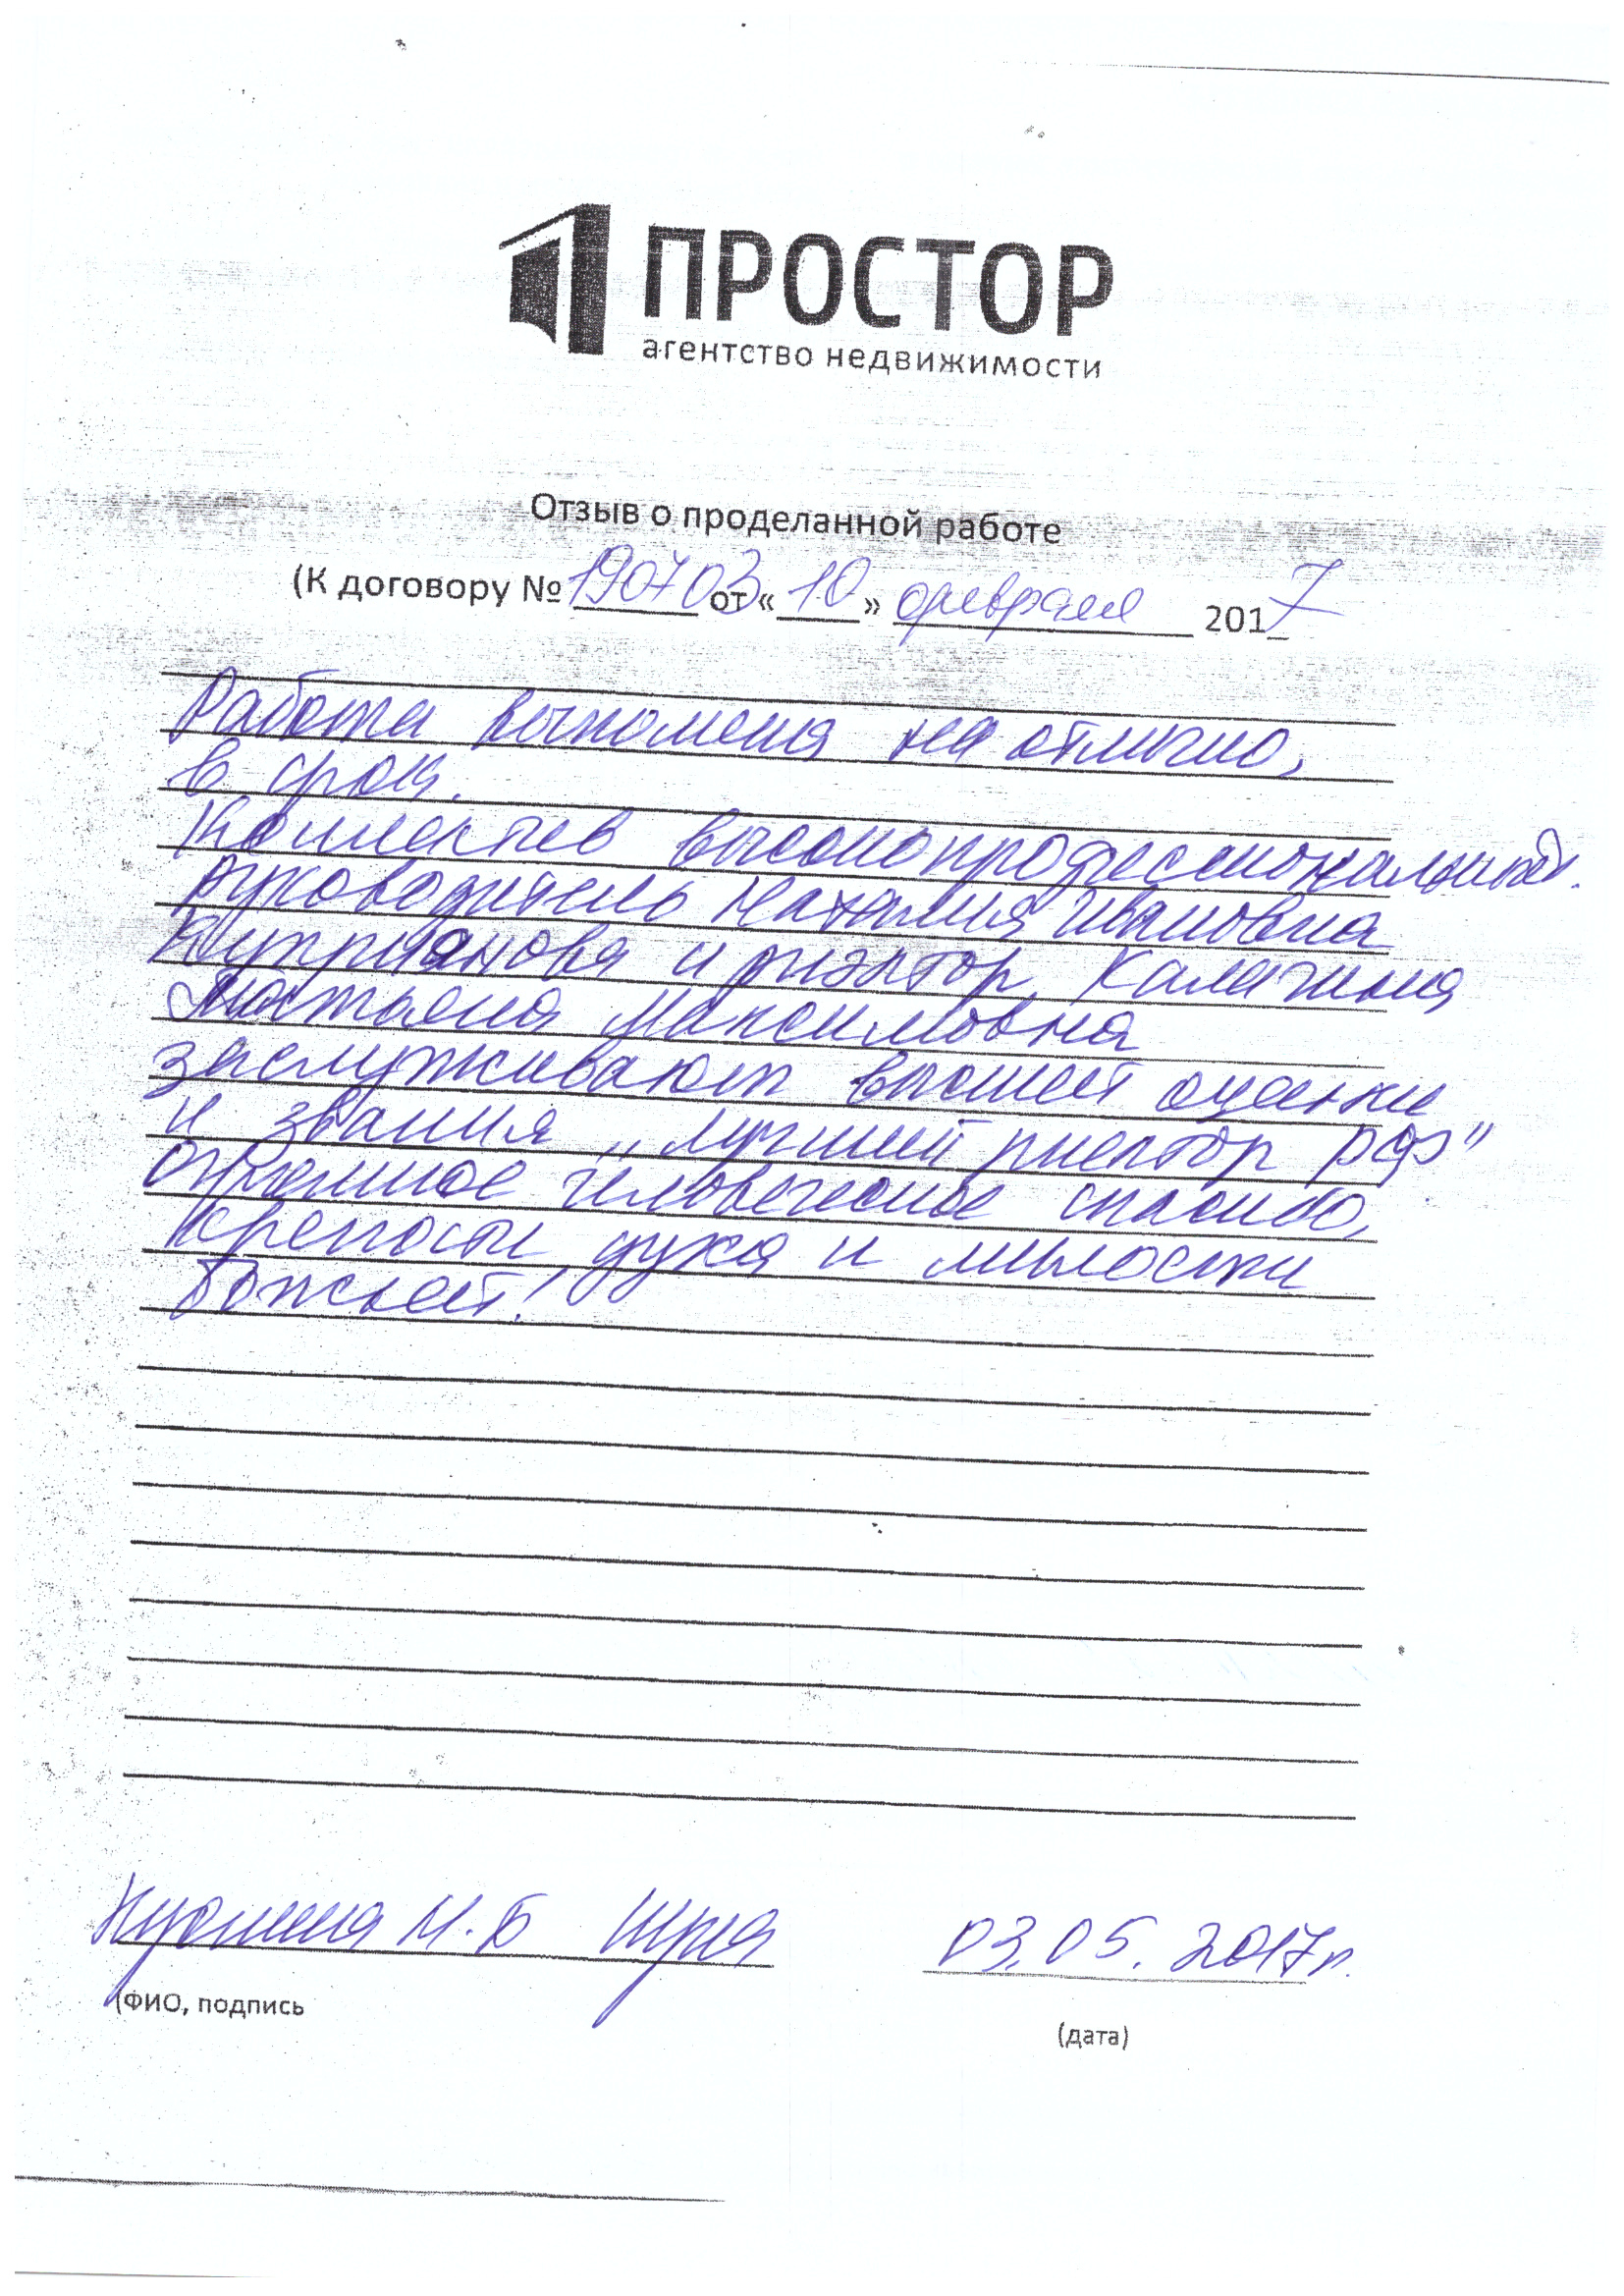 ПРОСТОР
агентство недвижимости
Отзыв о проделанной работе
(К договору № 190703 от «10» февраля 2017
Работа выполнена на отлично,
в срок.
Коллектив высокопрофессиональный.
Руководитель Наталия Ивановна
Куприянова и риэлтор Калачина
Татьяна Максимовна
заслуживают высшей оценки
и звания „лучший риелтор РФ"
огромное человеческое спасибо,
крепости духа и милости
Божьей!
М.Б 03.05.2017г.
(ФИО, подпись
(дата)